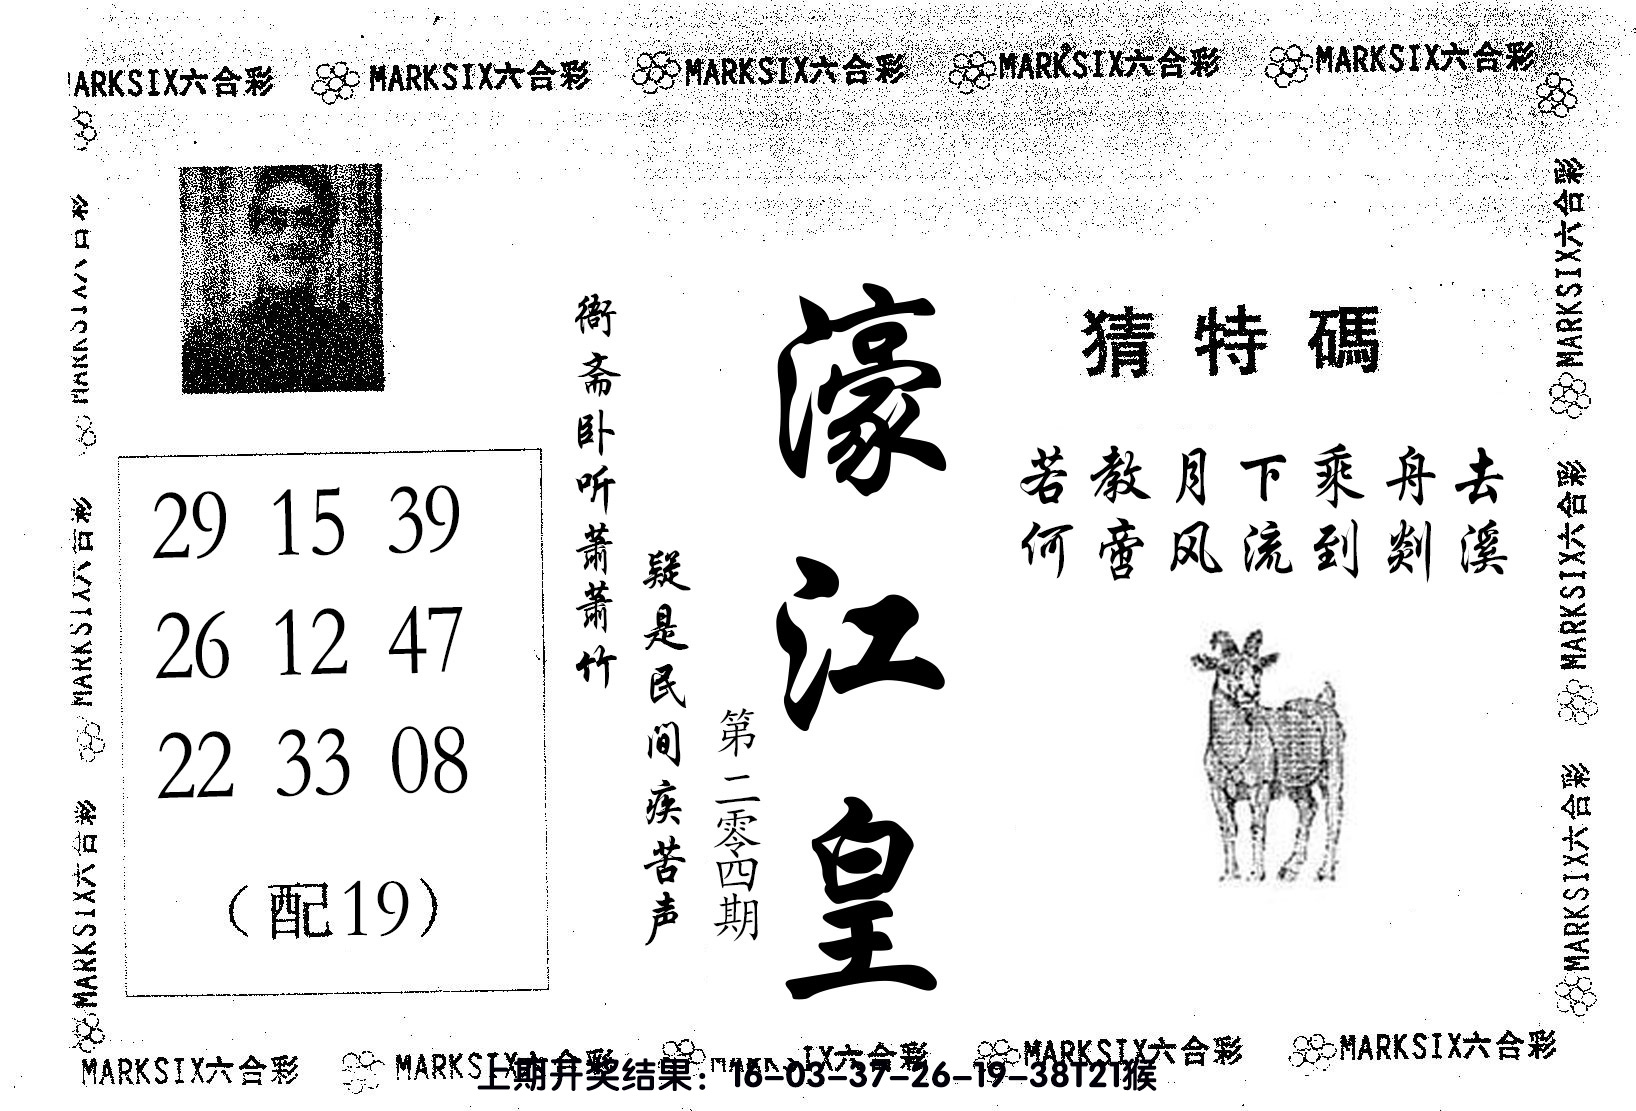 MARKSIX六合彩 MARKSIX六合彩 MARKSIX六合彩 MARKSIX六合彩 MARKSIX六合彩
猜特碼
若教月下乘舟去
何啻风流到剡溪
濠江皇
第二零四期
衙斋卧听萧萧竹
疑是民间疾苦声
29 15 39
26 12 47
22 33 08
(配19)
MARKSIX六合彩
MARKSIX六合彩
MARKSIX六合彩
MARKSIX六合彩
MARKSIX六合彩
MARKSIX六合彩
MARKSIX六合彩 MARKSIX六合彩 MARKSIX六合彩 MARKSIX六合彩 MARKSIX六合彩
上期开奖结果：16-03-37-26-19-38T21猴